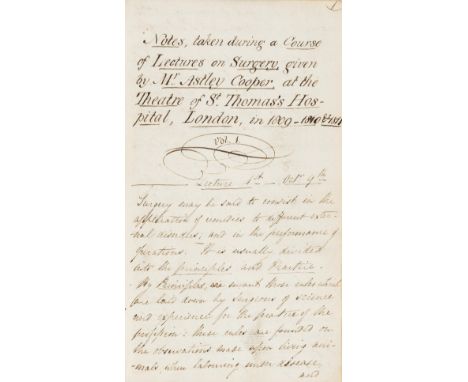 1
Notes, taken during a Course
of Lectures on Surgery, given
by Mr Astley Cooper, at the
Theatre of St Thomas's Hos-
pital, London, in 1809-1810 &
Vol. 1
Lecture 1st Octr 9th
Surgery may be said to consist in the
application of remedies to different exter-
nal disorders, and in the performance of
operations. It is usually divided
into the principles and Practice.
By Principles, we meant those rules which
are laid down by surgeons of science
and experience for the practice of the
profession: these rules are founded on
the observations made upon living ani-
mals when labouring under disease
and